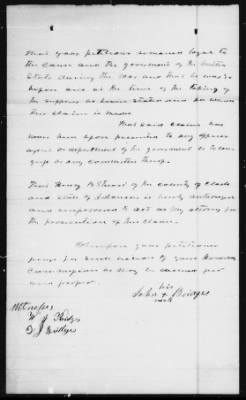 That your petitioner remained loyal to
the cause and the government of the United
States during the war and that he was so
before and at the time of the taking of
the supplies as herein stated and for which
this claim is made.
That said claim has
never been presented to any officer
agent or department of the government or to congress
or any committee thereof.
That Henry of the county of Clark
and State of Arkansas is hereby authorized
and empowered to act as my attorney for
the prosecution of this claim.
Wherefore your petitioner
prays for such action of your Honorable
Commission as may be deemed just
and proper.
his
John + Bridges
mark
Witnesses
W J
D J Bridges